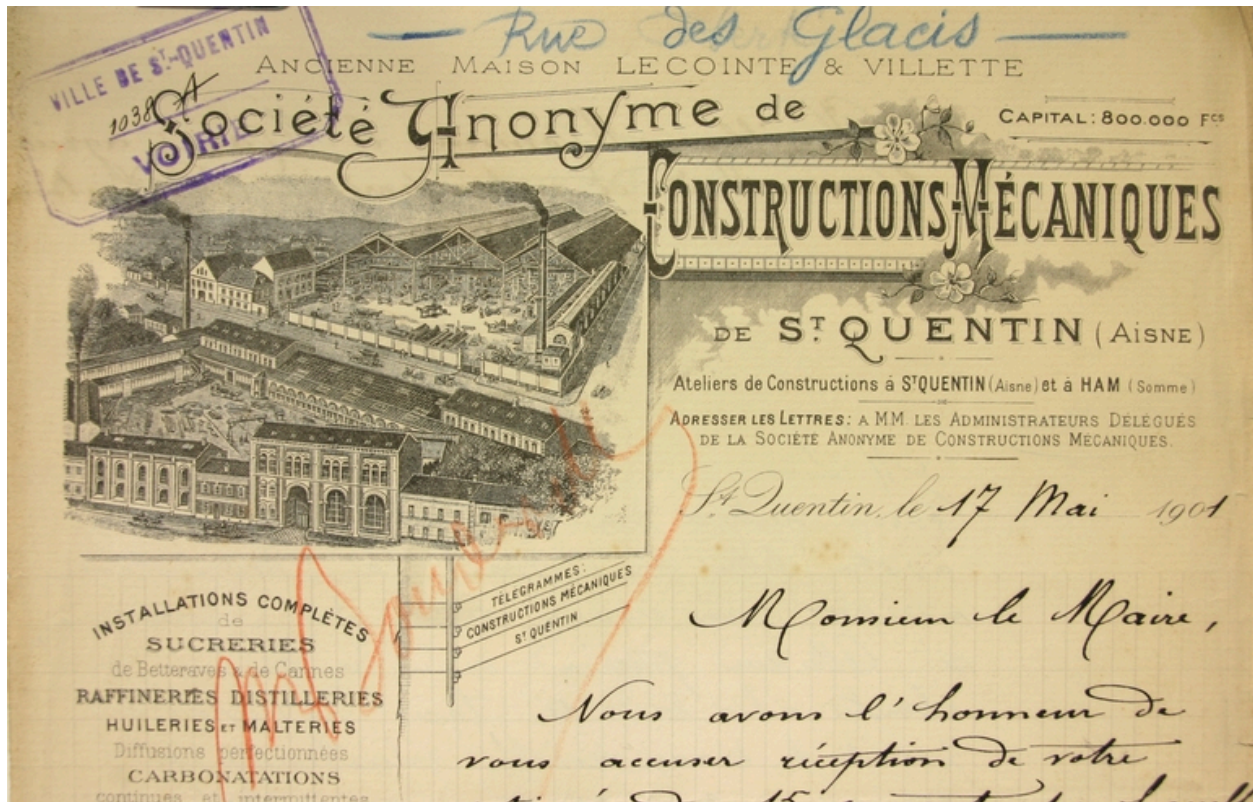 Rue des Glacis
VILLE DE ST-QUENTIN
1038 A
VOIRIE
ANCIENNE MAISON LECOINTE & VILLETTE
Société Anonyme de
CAPITAL: 800.000 Fcs
CONSTRUCTIONS MÉCANIQUES
DE ST QUENTIN (AISNE)
Ateliers de Constructions à ST QUENTIN (Aisne) et à HAM (Somme)
ADRESSER LES LETTRES: A MM. LES ADMINISTRATEURS DÉLÉGUÉS
DE LA SOCIÉTÉ ANONYME DE CONSTRUCTIONS MÉCANIQUES.
St Quentin, le 17 Mai 1901
TÉLÉGRAMMES:
CONSTRUCTIONS MÉCANIQUES
ST QUENTIN
INSTALLATIONS COMPLÈTES
de
SUCRERIES
de Betteraves & de Cannes
RAFFINERIES DISTILLERIES
HUILERIES ET MALTERIES
Diffusions perfectionnées
CARBONATATIONS
continues et intermittentes
Monsieur le Maire,
Nous avons l'honneur de
vous accuser réception de votre